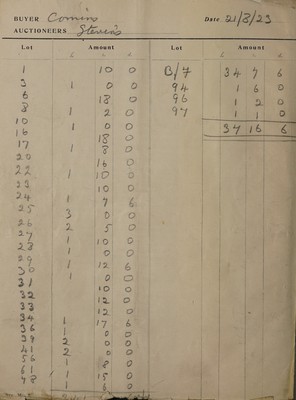 BUYER Comins Date 21/8/23
AUCTIONEERS Stevens
Lot Amount Lot Amount
£ s d £ s d
1 10 0 B/7 34 7 6
3 1 0 0 94 1 6 0
6 18 0 96 1 2 0
8 1 2 0 97 1 1 0
10 1 0 0 37 16 6
16 18 0
17 1 8 0
20 16 0
22 1 10 0
23 10 0
24 1 7 6
25 3 0 0
26 2 5 0
27 1 10 0
28 1 0 0
29 1 12 6
30 1 0 0
31 10 0
32 12 0
33 12 0
34 1 17 6
36 1 0 0
39 2 0 0
41 2 0 0
56 1 8 0
61 1 15 0
78 1 6 0